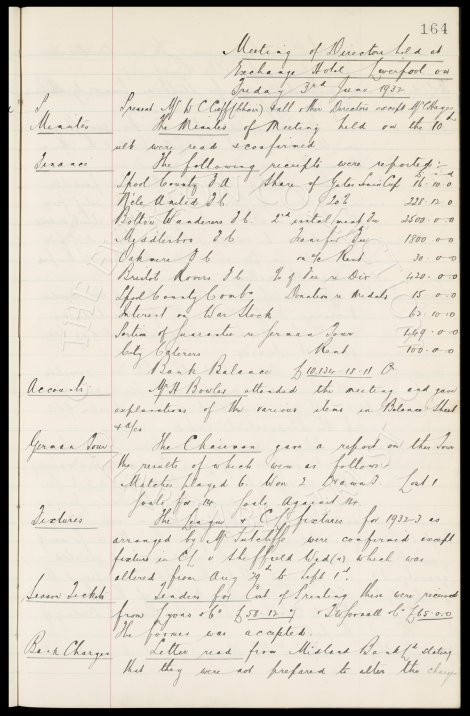 164
Meeting of Directors held at
Exchange Hotel Liverpool on
Friday 3rd June 1932
Present Mr W C Cuff (Chair) & all other Directors except Mr
Minutes The Minutes of Meeting held on the 10th
ult were read & confirmed
Finance The following receipts were reported:-
£ s d
Lpool County F A Share of Gates 16.10.0
N'cle United F C 20% 228.12.0
Bolton Wanderers F.C. 2nd instalment Fee 2500.0.0
Myddlesboro F C Transfer Fee 1800.0.0
Oakmere F C on a/c Rent 30.0.0
Bristol Rovers F C % of Fee re Dix 420.0.0
Lpool County Comb'n Donation re Medals 15.0.0
Interest on War Stock 63.10.10
Portion of Guarantee re German Tour
City Caterers Rent 100.0.0
Bank Balance £10,134.18.11 Cr
Accounts: Mr H Bowler attended the meeting and gave
explanations of the various items in Balance Sheet
& a/cs
German Tour The Chairman gave a report on this Tour
the results of which were as follows:
Matches played 6. Won 2 Drawn 3 Lost 1
Goals for 14 Goals Against 14.
Fixtures The League & C.L. fixtures for 1932-3 as
arranged by Mr Sutcliffe were confirmed except
fixture in C.L. v Sheffield Wed(a) which was
altered from Aug 29th to Sept 1st.
Season Tickets Tenders for Cost of Printing these were received
from Tyons & Co £58.12.9 & £65.0.0
The former was accepted.
Bank Charges Letter read from Midland Bank Ltd stating
that they were not prepared to alter the charges